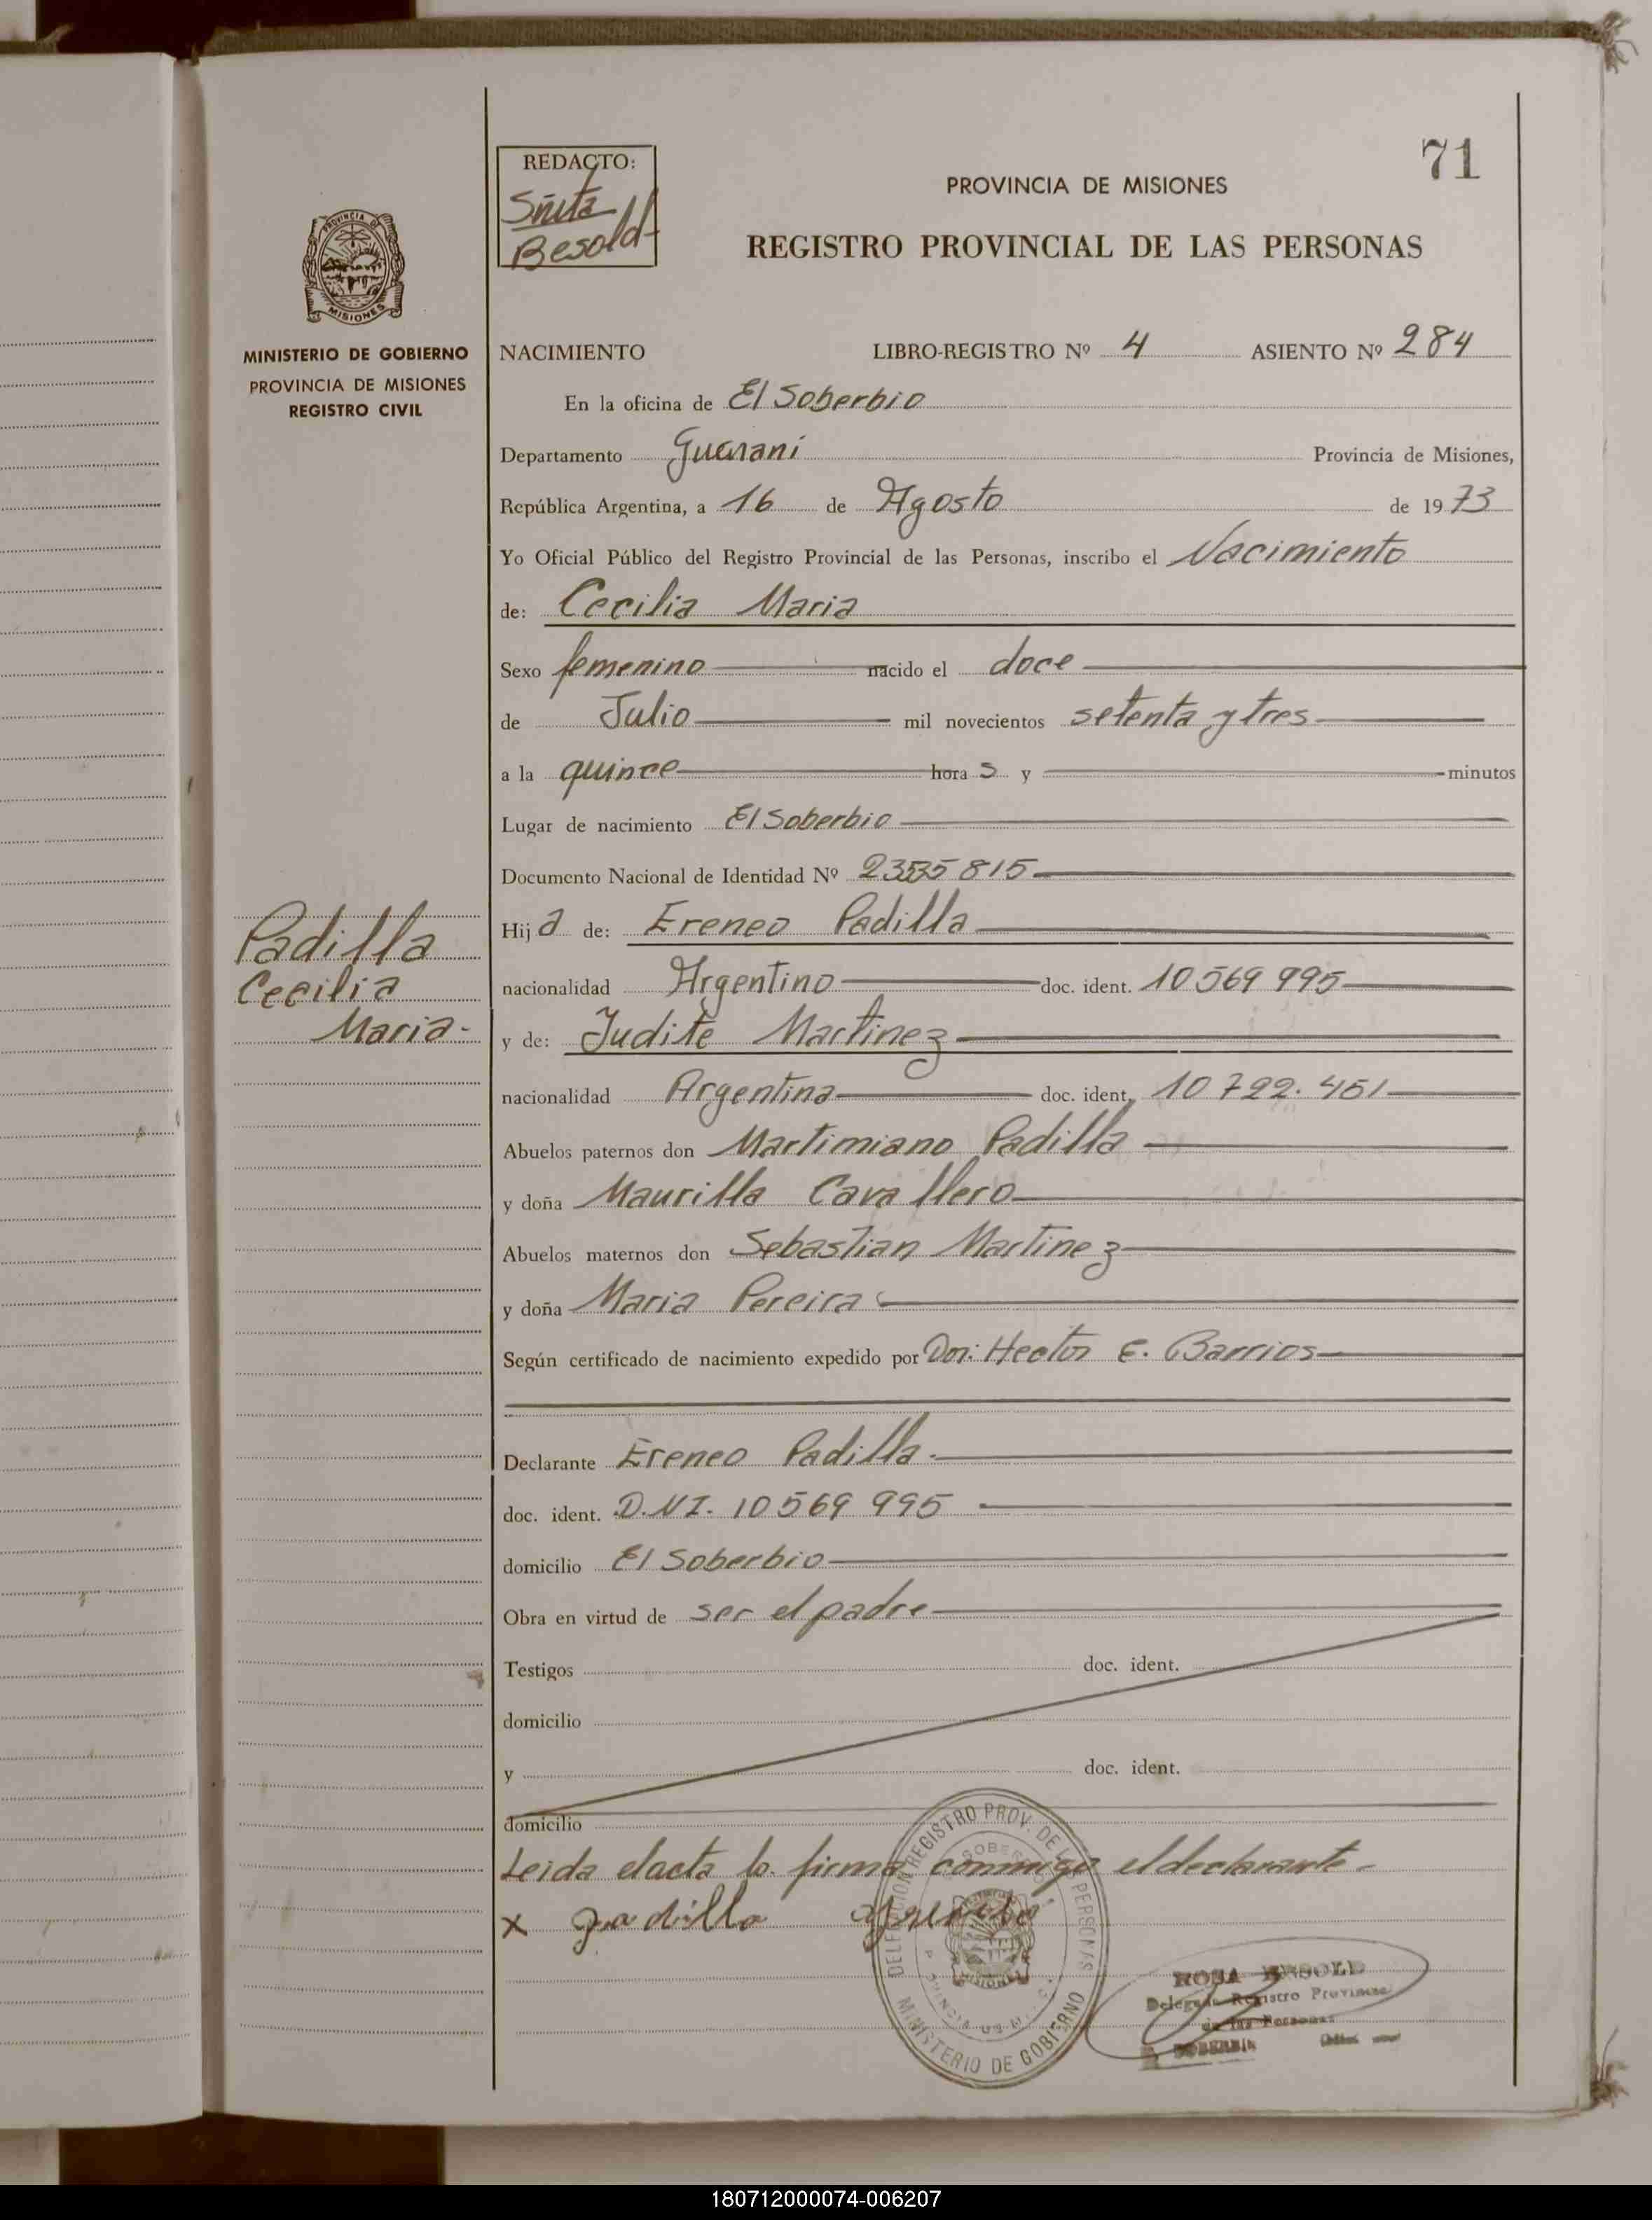 71
REDACTO:
Sñita
Besold
PROVINCIA DE MISIONES
REGISTRO PROVINCIAL DE LAS PERSONAS
PROVINCIA DE
MISIONES
MINISTERIO DE GOBIERNO
PROVINCIA DE MISIONES
REGISTRO CIVIL
NACIMIENTO LIBRO-REGISTRO Nº 4 ASIENTO Nº 284
En la oficina de El Soberbio
Departamento Guarani Provincia de Misiones,
República Argentina, a 16 de Agosto de 1973
Yo Oficial Público del Registro Provincial de las Personas, inscribo el Nacimiento
de: Cecilia Maria
Sexo femenino nacido el doce
de Julio mil novecientos setenta y tres
a la quince hora s y minutos
Lugar de nacimiento El Soberbio
Documento Nacional de Identidad Nº
Hija de: Ereneo Padilla
Padilla
Cecilia
Maria-
nacionalidad Argentino doc. ident. 10 569 995
y de: Judite Martinez
nacionalidad Argentina doc. ident. 10 722. 451
Abuelos paternos don Martimiano Padilla
y doña Maurilla Cavallero
Abuelos maternos don Sebastian Martinez
y doña Maria Pereira
Según certificado de nacimiento expedido por Don: Hector E. Barrios
Declarante Ereneo Padilla.
doc. ident. D.NI. 10 569 995
domicilio El Soberbio
Obra en virtud de ser el padre
Testigos doc. ident.
domicilio
y doc. ident.
domicilio
Leida elacta la firma conmigo eldeclarante-
x padilla
DELEGACION REGISTRO PROV. DE LAS PERSONAS
MINISTERIO DE GOBIERNO
MISIONES
ROSA BESOLD
Delegada Registro Provincial
de las Personas
SOBERBIO
180712000074-006207